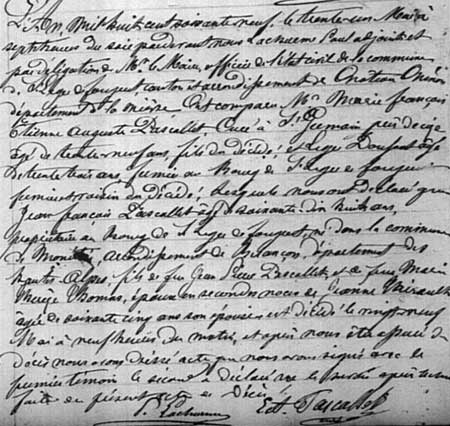 L'An, mil huit cent soixante neuf le trente un Mai à
sept heures du soir pardevant nous Lachaume Paul adjoint et
par délégation de Mr. le Maire, officier de l'état civil de la commune
de St Léger de fougeret canton et arrondissement de Chateau Chinon
département de la nièvre Ont comparu Mr. Marie français
Etienne Auguste Pascallet Curé à St Germain près
agé de trente neuf ans, fils du décédé, et Léger agé
de trente trois ans, au Bourg de St Léger de fougeret
premier voisin du décédé; Lesquels nous ont déclaré que
Jean français Pascallet âgé de soixante dix huit ans,
propriétaire au bourg de St Léger de fougeret, né dans la commune
de arrondissement de Briançon, département des
hautes alpes, fils de feu Jean Pascallet, et de feue Marie
Thomas, époux en secondes noces de Jeanne
agée de soixante cinq ans son épouse est décédé le vingt neuf
Mai à neuf heures du matin, et après nous être assuré du
décès nous avons dressé acte que nous avons signé avec le
premier témoin le second a déclaré ne le savoir après lecture
faite du présent acte de Décès.
P. Lachaume Ed. Pascallet